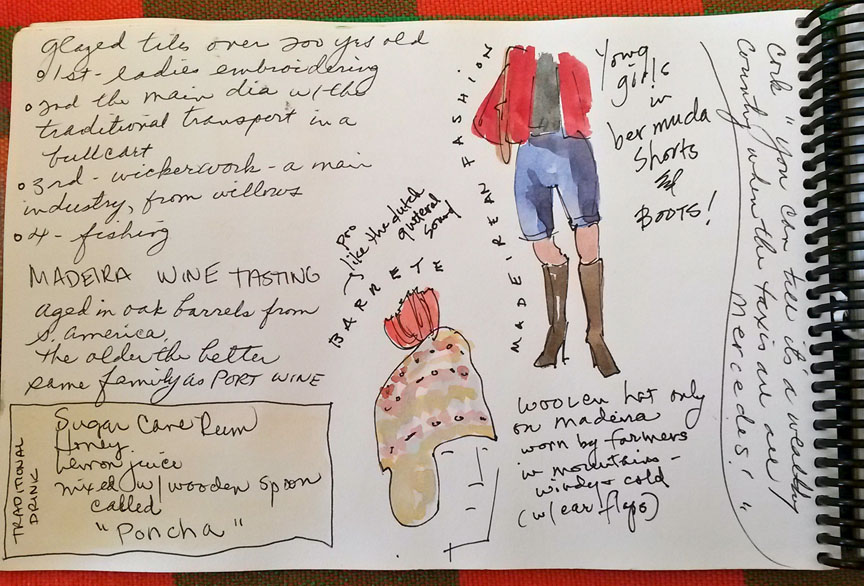 glazed tiles over 200 yrs old
• 1st - ladies embroidering
• 2nd the main dia w/the
traditional transport in a
bullcart
• 3rd - wickerwork - a main
industry, from willows
• 4 - fishing
MADEIRA WINE TASTING
aged in oak barrels from
S. America,
the older the better
same family as PORT WINE
TRADITIONAL
DRINK
Sugar Cane Rum
Honey
Lemon juice
mixed w/wooden spoon
called
"Poncha"
BARRETE
pro
like the dutch
gutteral
sound
MADEIREAN FASHION
Yowg
girls
in
bermuda
shorts
&
BOOTS!
woolen hat only
on Madeira
worn by farmers
in mountains -
windy + cold
(w/ear flaps)
Cork "you can tell it's a wealthy
Country when the taxis are all
Mercedes!"